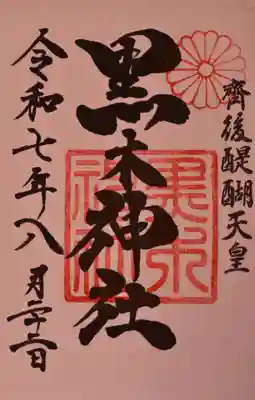 齊後醍醐天皇
黒木神社
黒木神社
令和七年八月二十二日